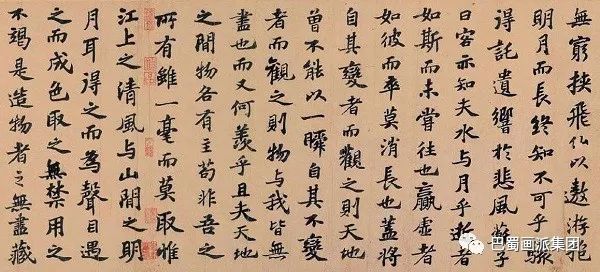 無窮挾飛仙以遨游抱
明月而長終知不可乎驟
得託遺響於悲風蘇子
曰客亦知夫水与月乎逝者
如斯而未嘗往也贏虛者
如彼而卒莫消長也蓋將
自其變者而觀之則天地
曾不能以一瞬自其不變
者而觀之則物与我皆無
盡也而又何羨乎且夫天地
之間物各有主苟非吾之
所有雖一毫而莫取惟
江上之清風与山間之明
月耳得之而為聲目遇
之而成色取之無禁用之
不竭是造物者之無盡藏
巴蜀画派集团